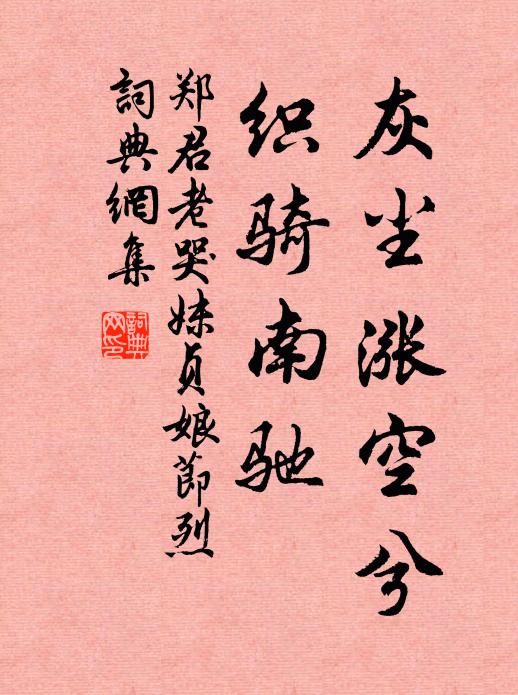 灰尘涨空兮
织骑南驰
郑君老哭妹贞娘節烈
詞典網集
詞典
网印